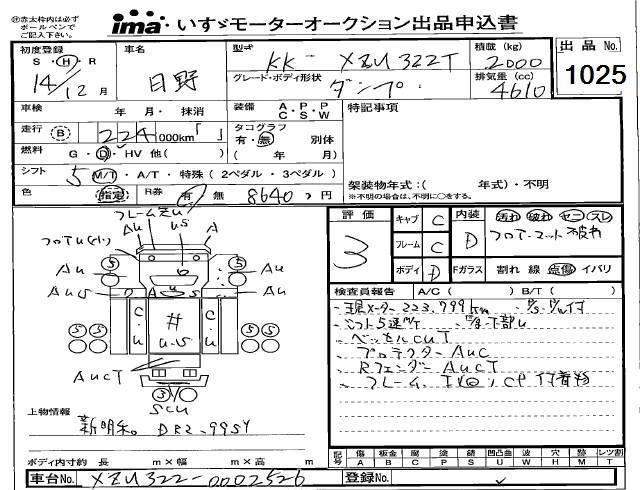 ㊟赤太枠内は必ず
ボールペンで
ご記入下さい。
ima いすゞモーターオークション出品申込書
初度登録
S・H・R
14/12月
車名
日野
型式
KK- XZU322T
グレード・ボディ形状
ダンプ
積載 (kg)
2000
排気量 (cc)
4610
出品 No.
1025
車検 年 月・抹消
装備 A・P・P C・S・W
特記事項
走行 B 224,000km「 」
タコグラフ
有・無 別体
( 年 月)
燃料 G・D・HV 他( )
シフト 5 M/T・A/T・特殊(2ペダル・3ペダル)
架装物年式:( 年式)・不明
※不明の場合は、不明に○をする。
色 指定 R券 有 無 8640円
評価
3
キャブ C
フレーム C
ボディ D
内装 D
汚れ 破れ ヤニ スレ
フロアーマット破れ
Fガラス 割れ 線 点傷 イバリ
検査員報告 A/C ( ) B/T ( )
現メーター223,799km
シフト5速 下部U
ベッセルCUT
プロテクターAUC
RフェンダーAUCT
フレーム 付着物
フレームサU
Au
US
A
Au
Au
AuS
A
u
S
Au
uS
C・U
#
U・S
C・U
AUCT
SCU
上物情報
新明和。DR2-995Y
ボディ内寸約 長 m×幅 m×高 m
記号 傷 A 板金 B 腐 C 塗 P 錆 S 凹凸曲 U 波 W 穴 H 跡 M レツ割 T
車台No. XZU322-0002526
登録No.